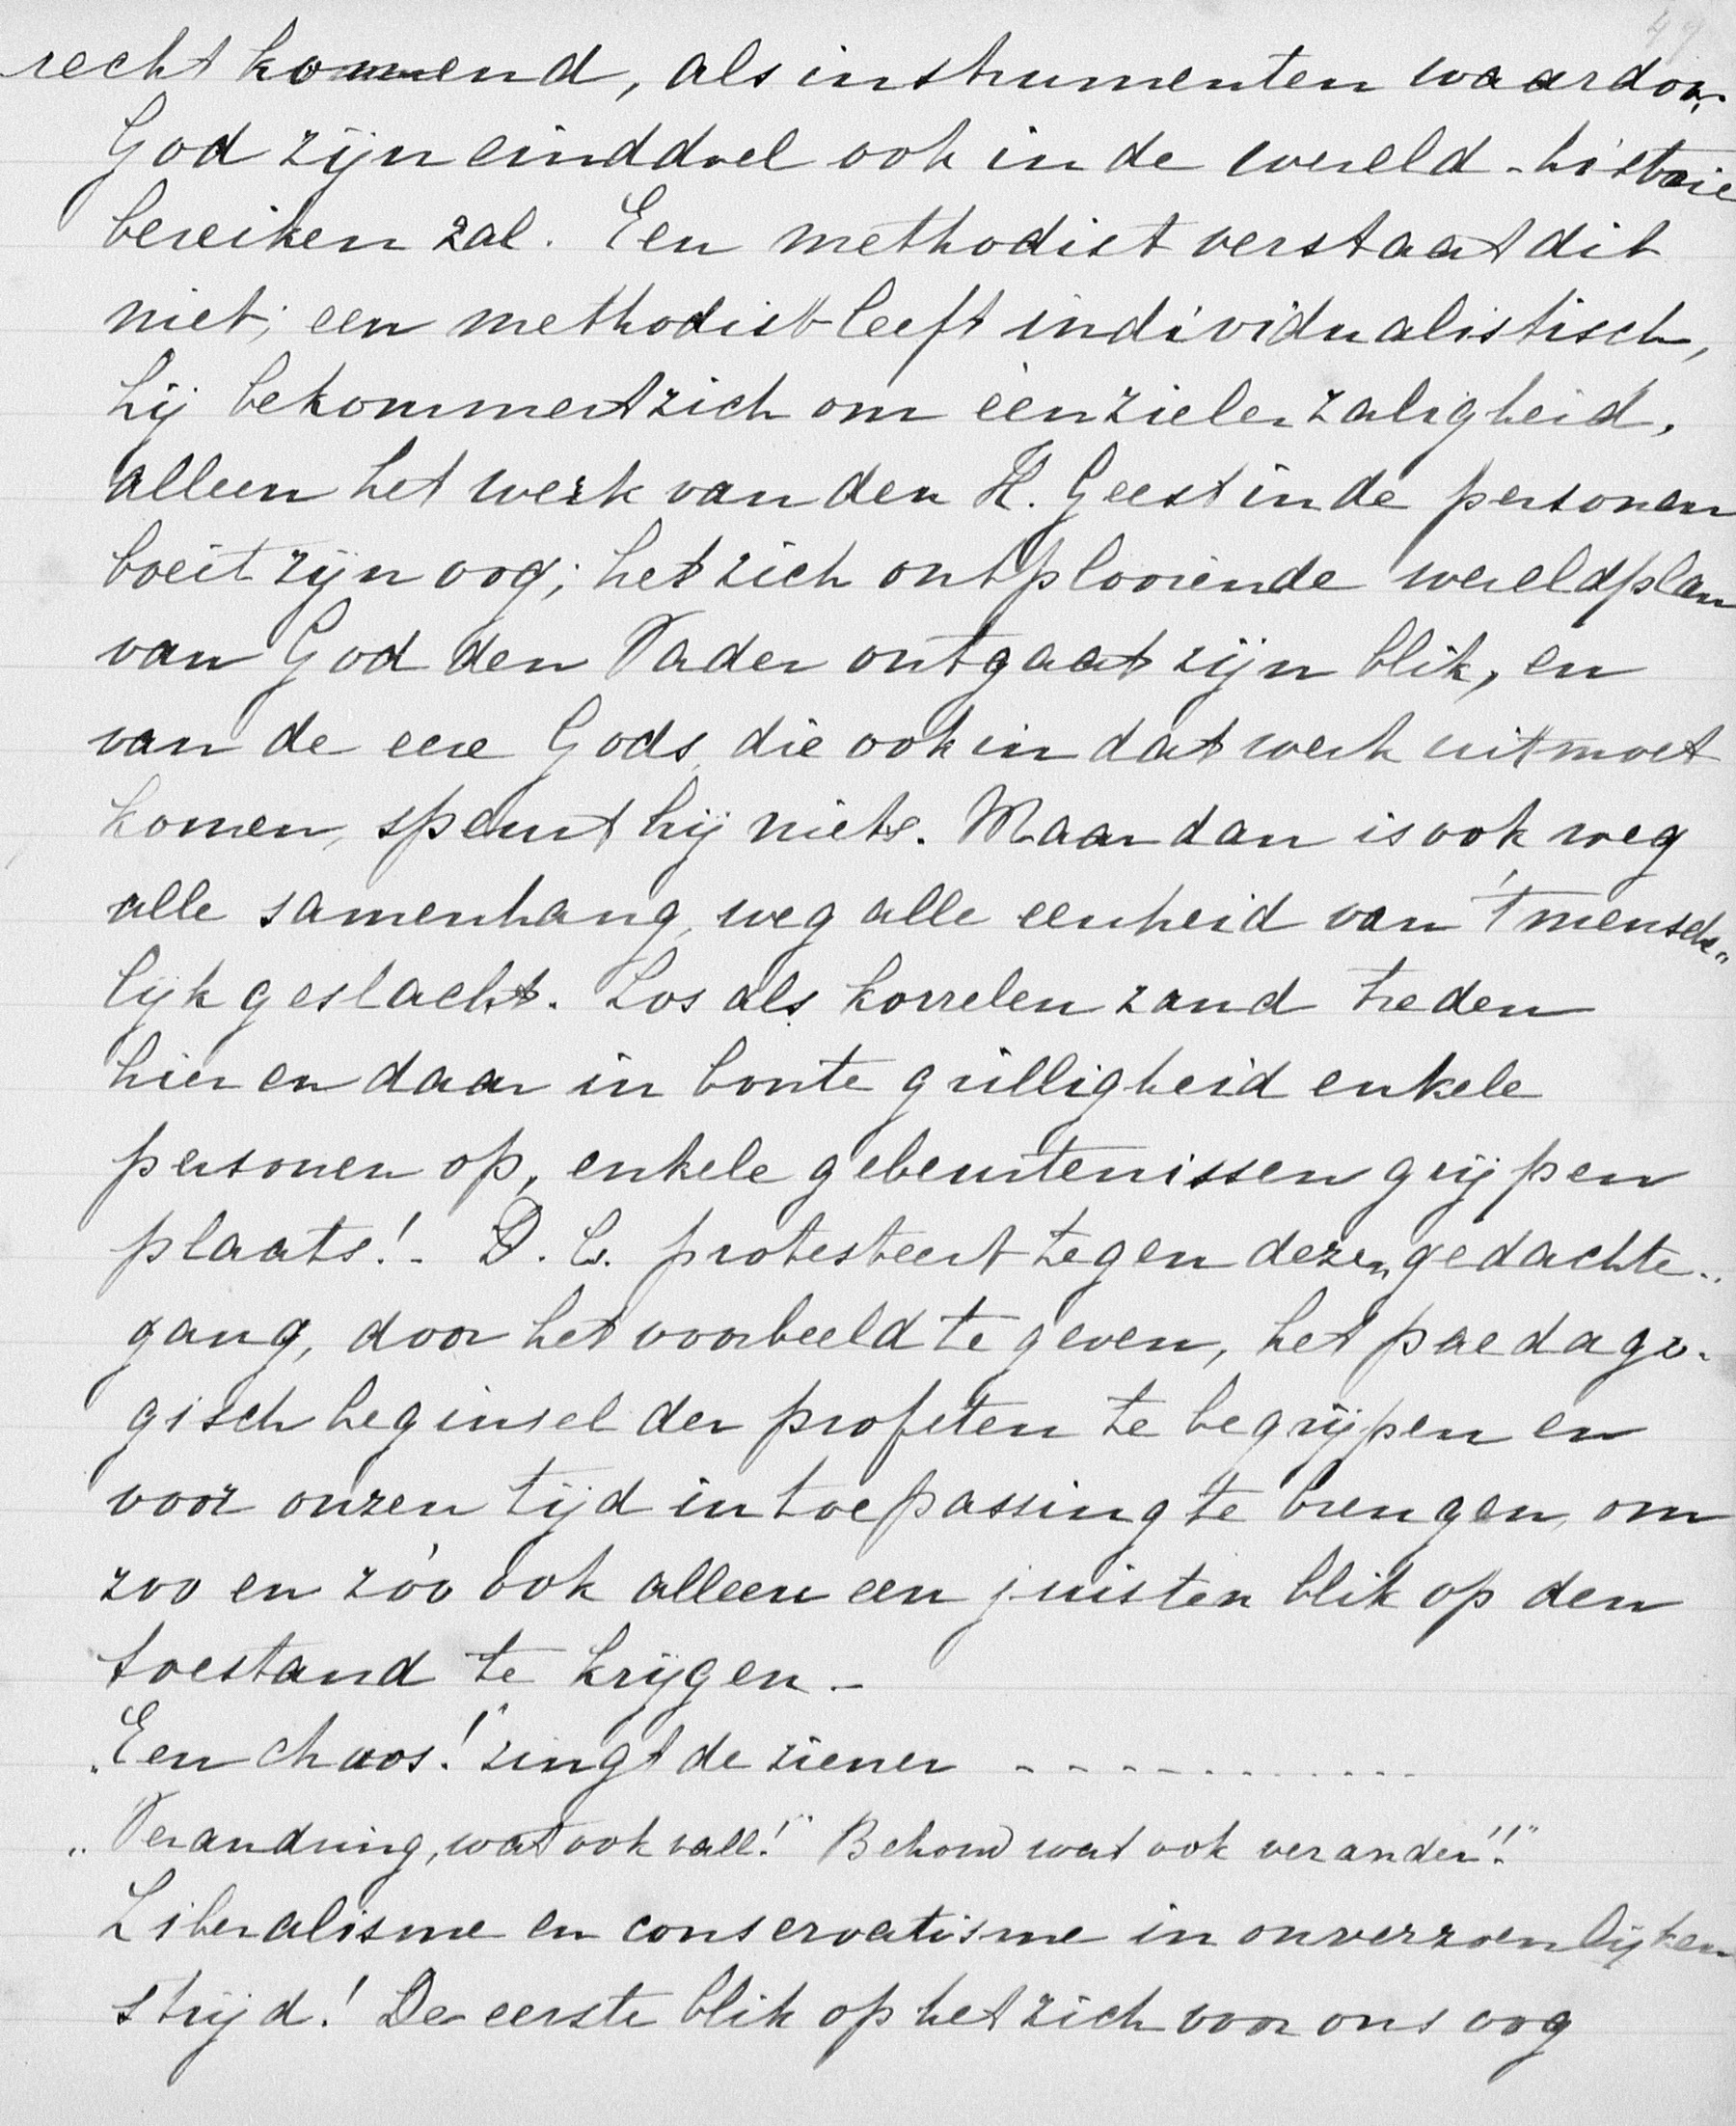 49
recht komend, als instrumenten waardoor
God zijn einddoel ook in de wereld-historie
bereiken zal. Een methodist verstaat dit
niet; een methodist leeft individualistisch,
hij bekommert zich om éénzielen zaligheid,
alleen het werk van den H. Geest in de personen
boeit zijn oog; het zich ontplooiende wereldplan
van God den Vader ontgaat zijn blik, en
van de eere Gods, die ook in dat werk uit moet
komen, speurt hij niets. Maar dan is ook weg
alle samenhang, weg alle eenheid van 't mensche-
lijk geslacht. Los als korrelen zand treden
hier en daar in bonte grilligheid enkele
personen op, enkele gebeurtenissen grijpen
plaats! - D. C. protesteert tegen dezen gedachte-
gang, door het voorbeeld te geven, het paedago-
gisch beginsel der profeten te begrijpen en
voor onzen tijd in toepassing te brengen, om
zoo en zóó ook alleen een juisten blik op den
toestand te krijgen. -
"Een chaos!" zingt de ziener - - - - - - - - - - -
"Verandring, wat ook vall'!" Behoud wat ook verander'!"
Liberalisme en conservatisme in onverzoenlijken
strijd! De eerste blik op het zich voor ons oog